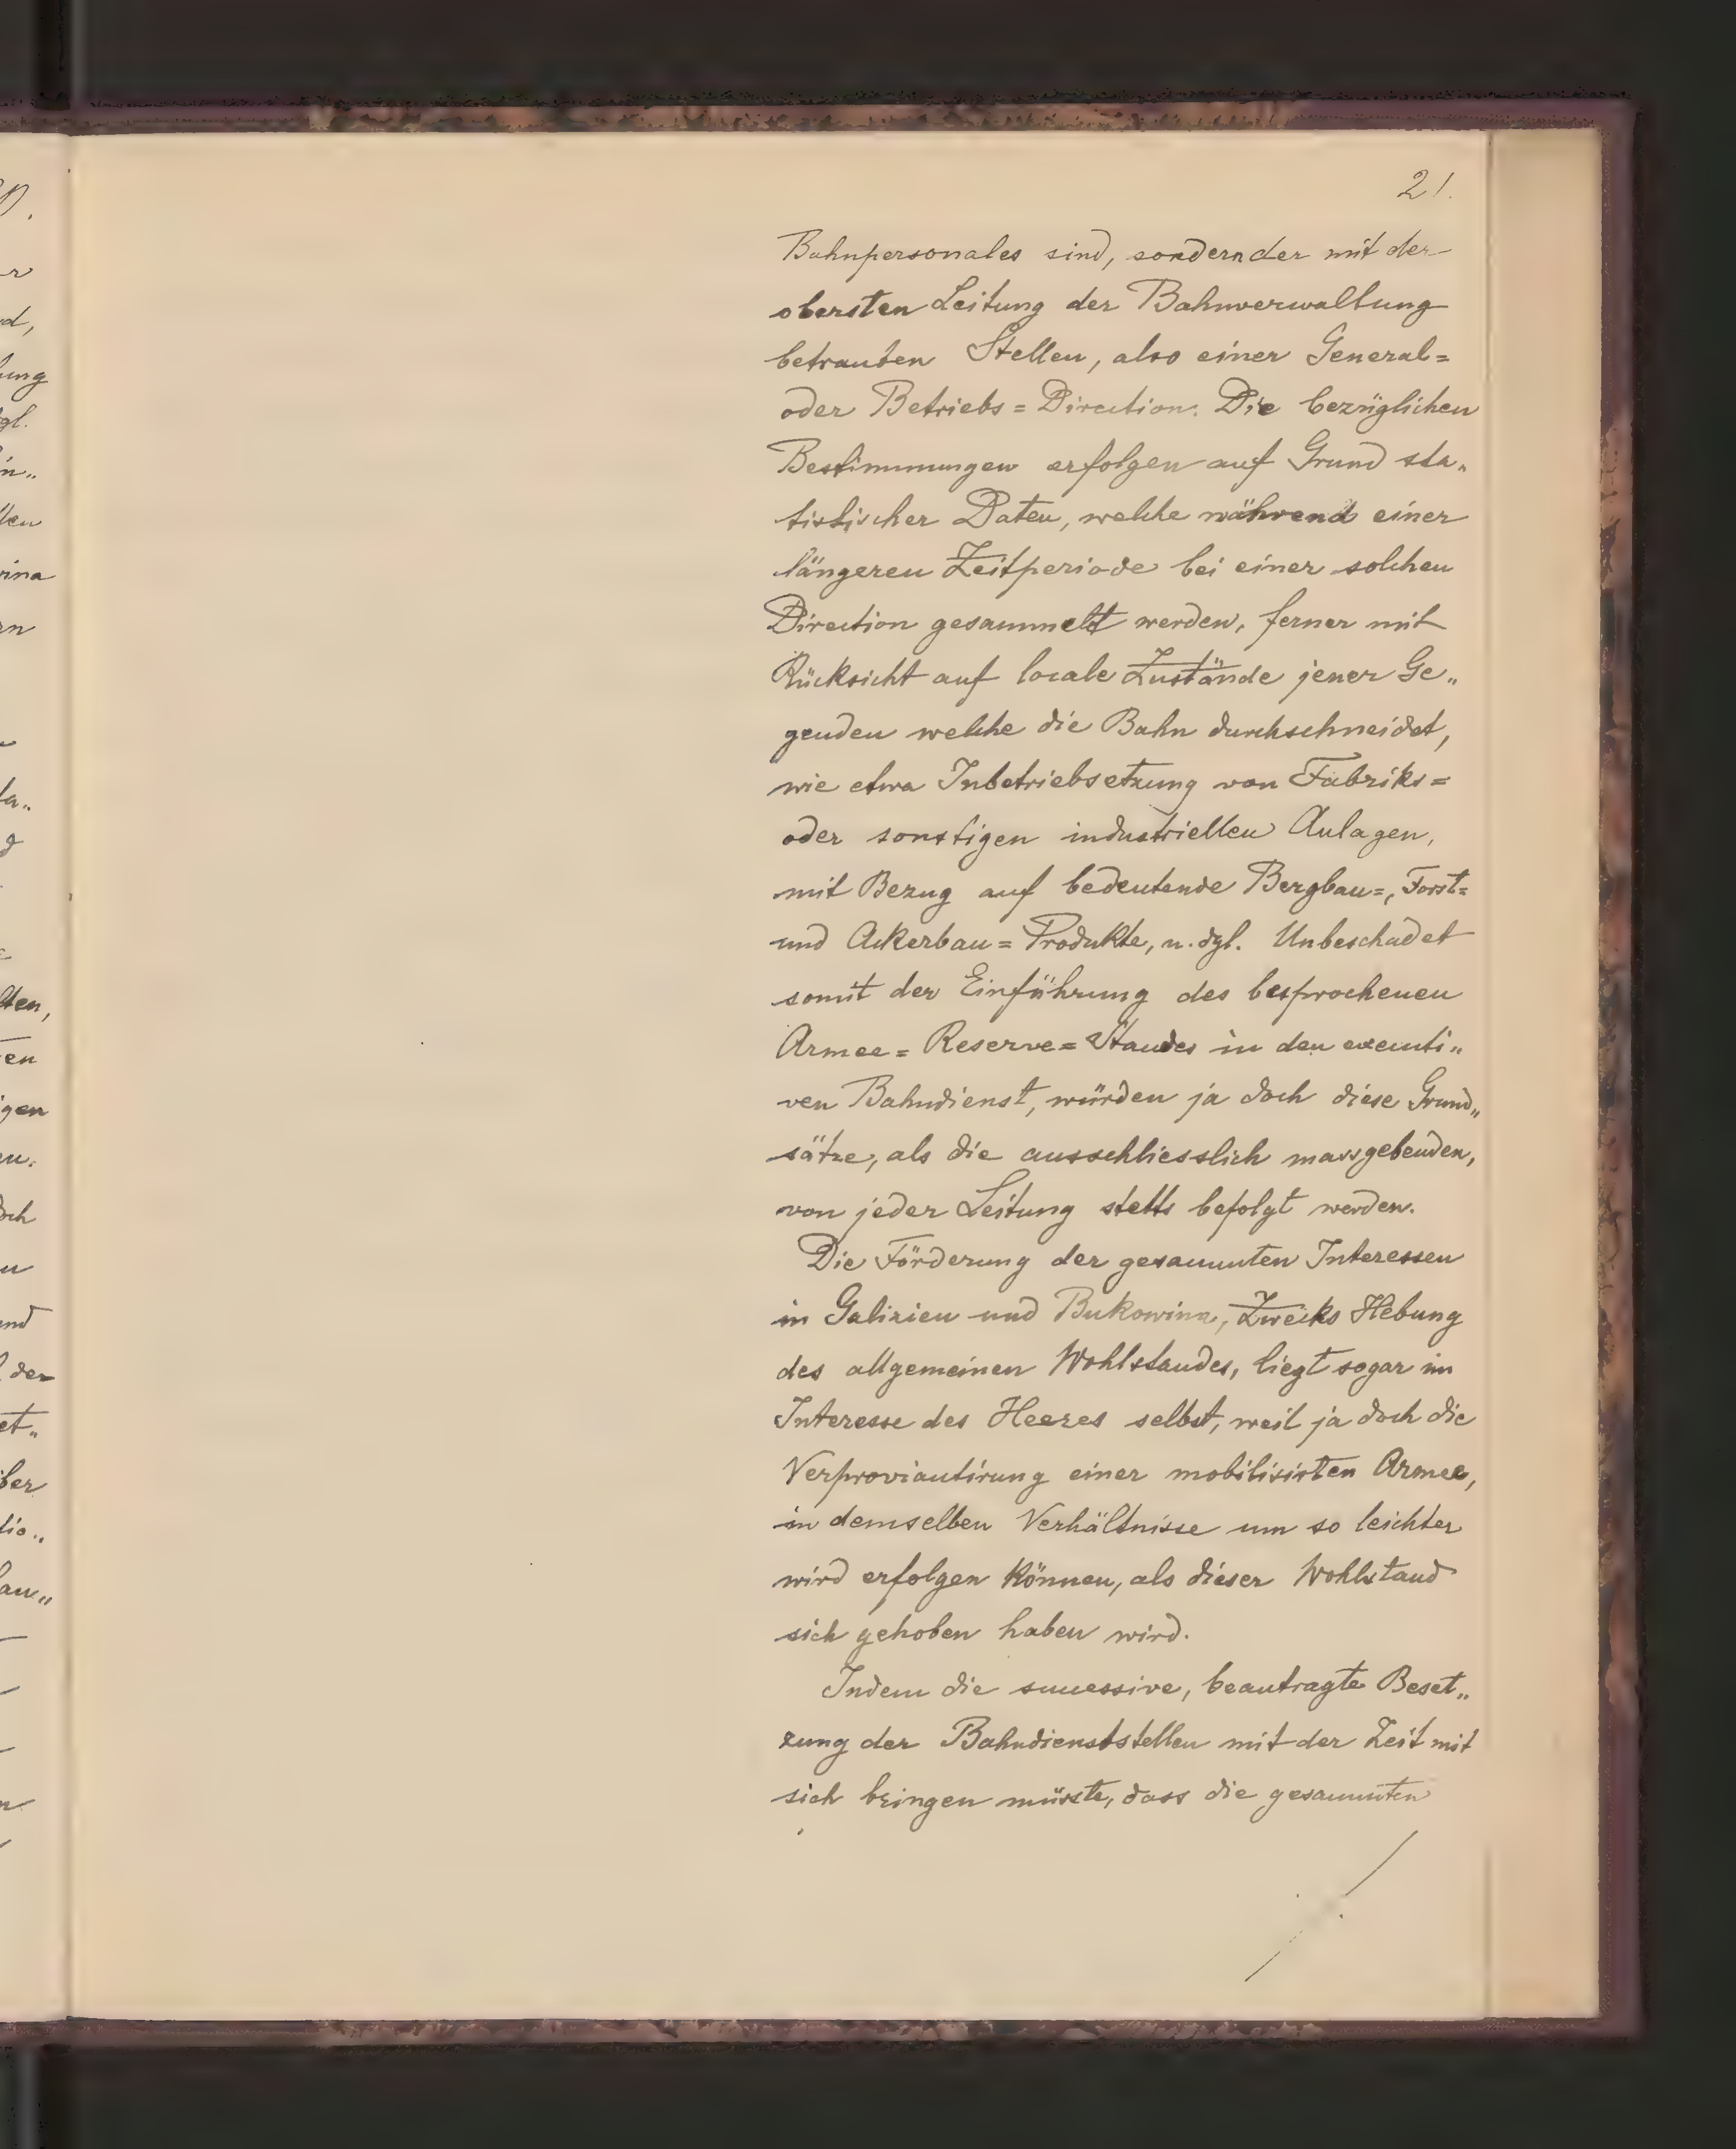 21.
Bahnpersonales sind, sondern der mit der
obersten Leitung der Bahnverwaltung
betrauten Stellen, also einer General=
oder Betriebs=Direction. Die bezüglichen
Bestimmungen erfolgen auf Grund sta„
tistischer Daten, welche während einer
längeren Zeitperiode bei einer solchen
Direction gesammelt werden, ferner mit
Rücksicht auf locale Zustände jener Ge„
genden welche die Bahn durchschneidet,
wie etwa Inbetriebsetzung von Fabriks=
oder sonstigen industriellen Anlagen,
mit Bezug auf bedeutende Bergbau=, Forst=
und Ackerbau=Produkte, u. dgl. Unbeschadet
somit der Einführung des besprochenen
Armee=Reserve=Standes in den executi„
ven Bahndienst, würden ja doch diese Grund„
sätze, als die ausschliesslich massgebenden,
von jeder Leitung stetts befolgt werden.
Die Förderung der gesammten Interessen
in Galizien und Bukowina, Zwecks Hebung
des allgemeinen Wohlstandes, liegt sogar im
Interesse des Heeres selbst, weil ja doch die
Verproviantirung einer mobilisirten Armee,
in demselben Verhältnisse um so leichter
wird erfolgen können, als dieser Wohlstand
sich gehoben haben wird.
Indem die successive, beantragte Beset„
zung der Bahndienststellen mit der Zeit mit
sich bringen müsste, dass die gesammten